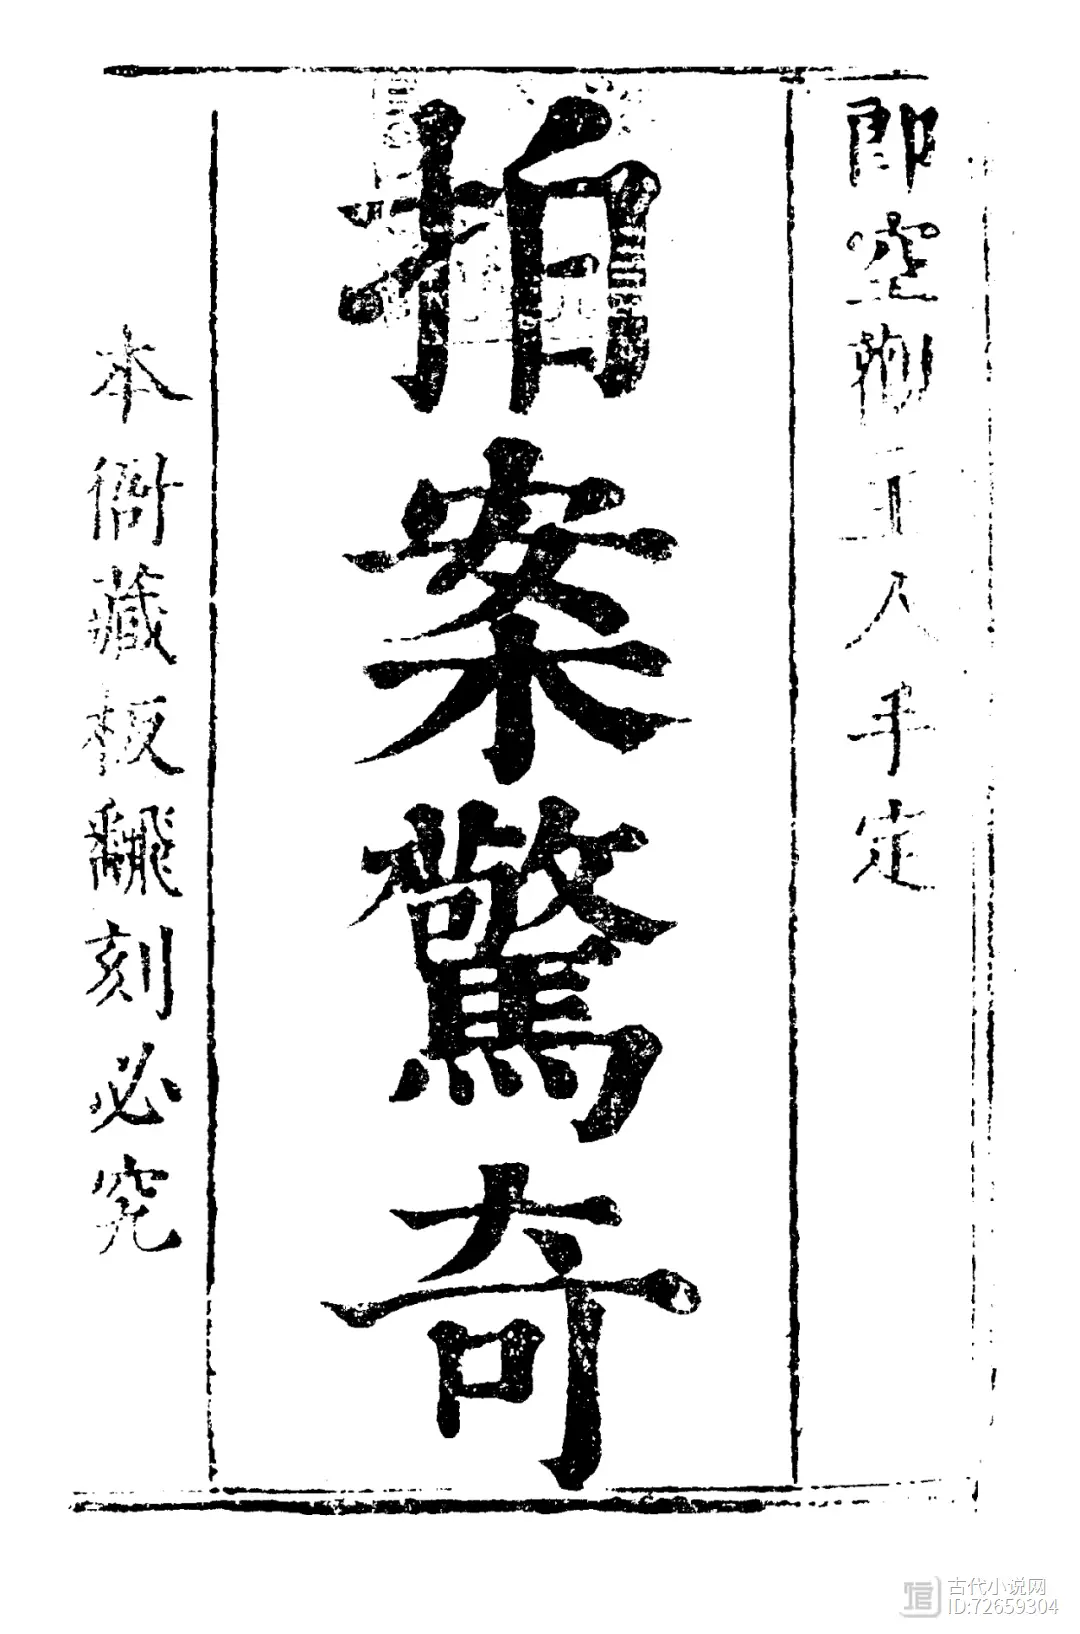 即空觀主人手定
拍案驚奇
本衙藏板飜刻必究
古代小说网
ID:72659304